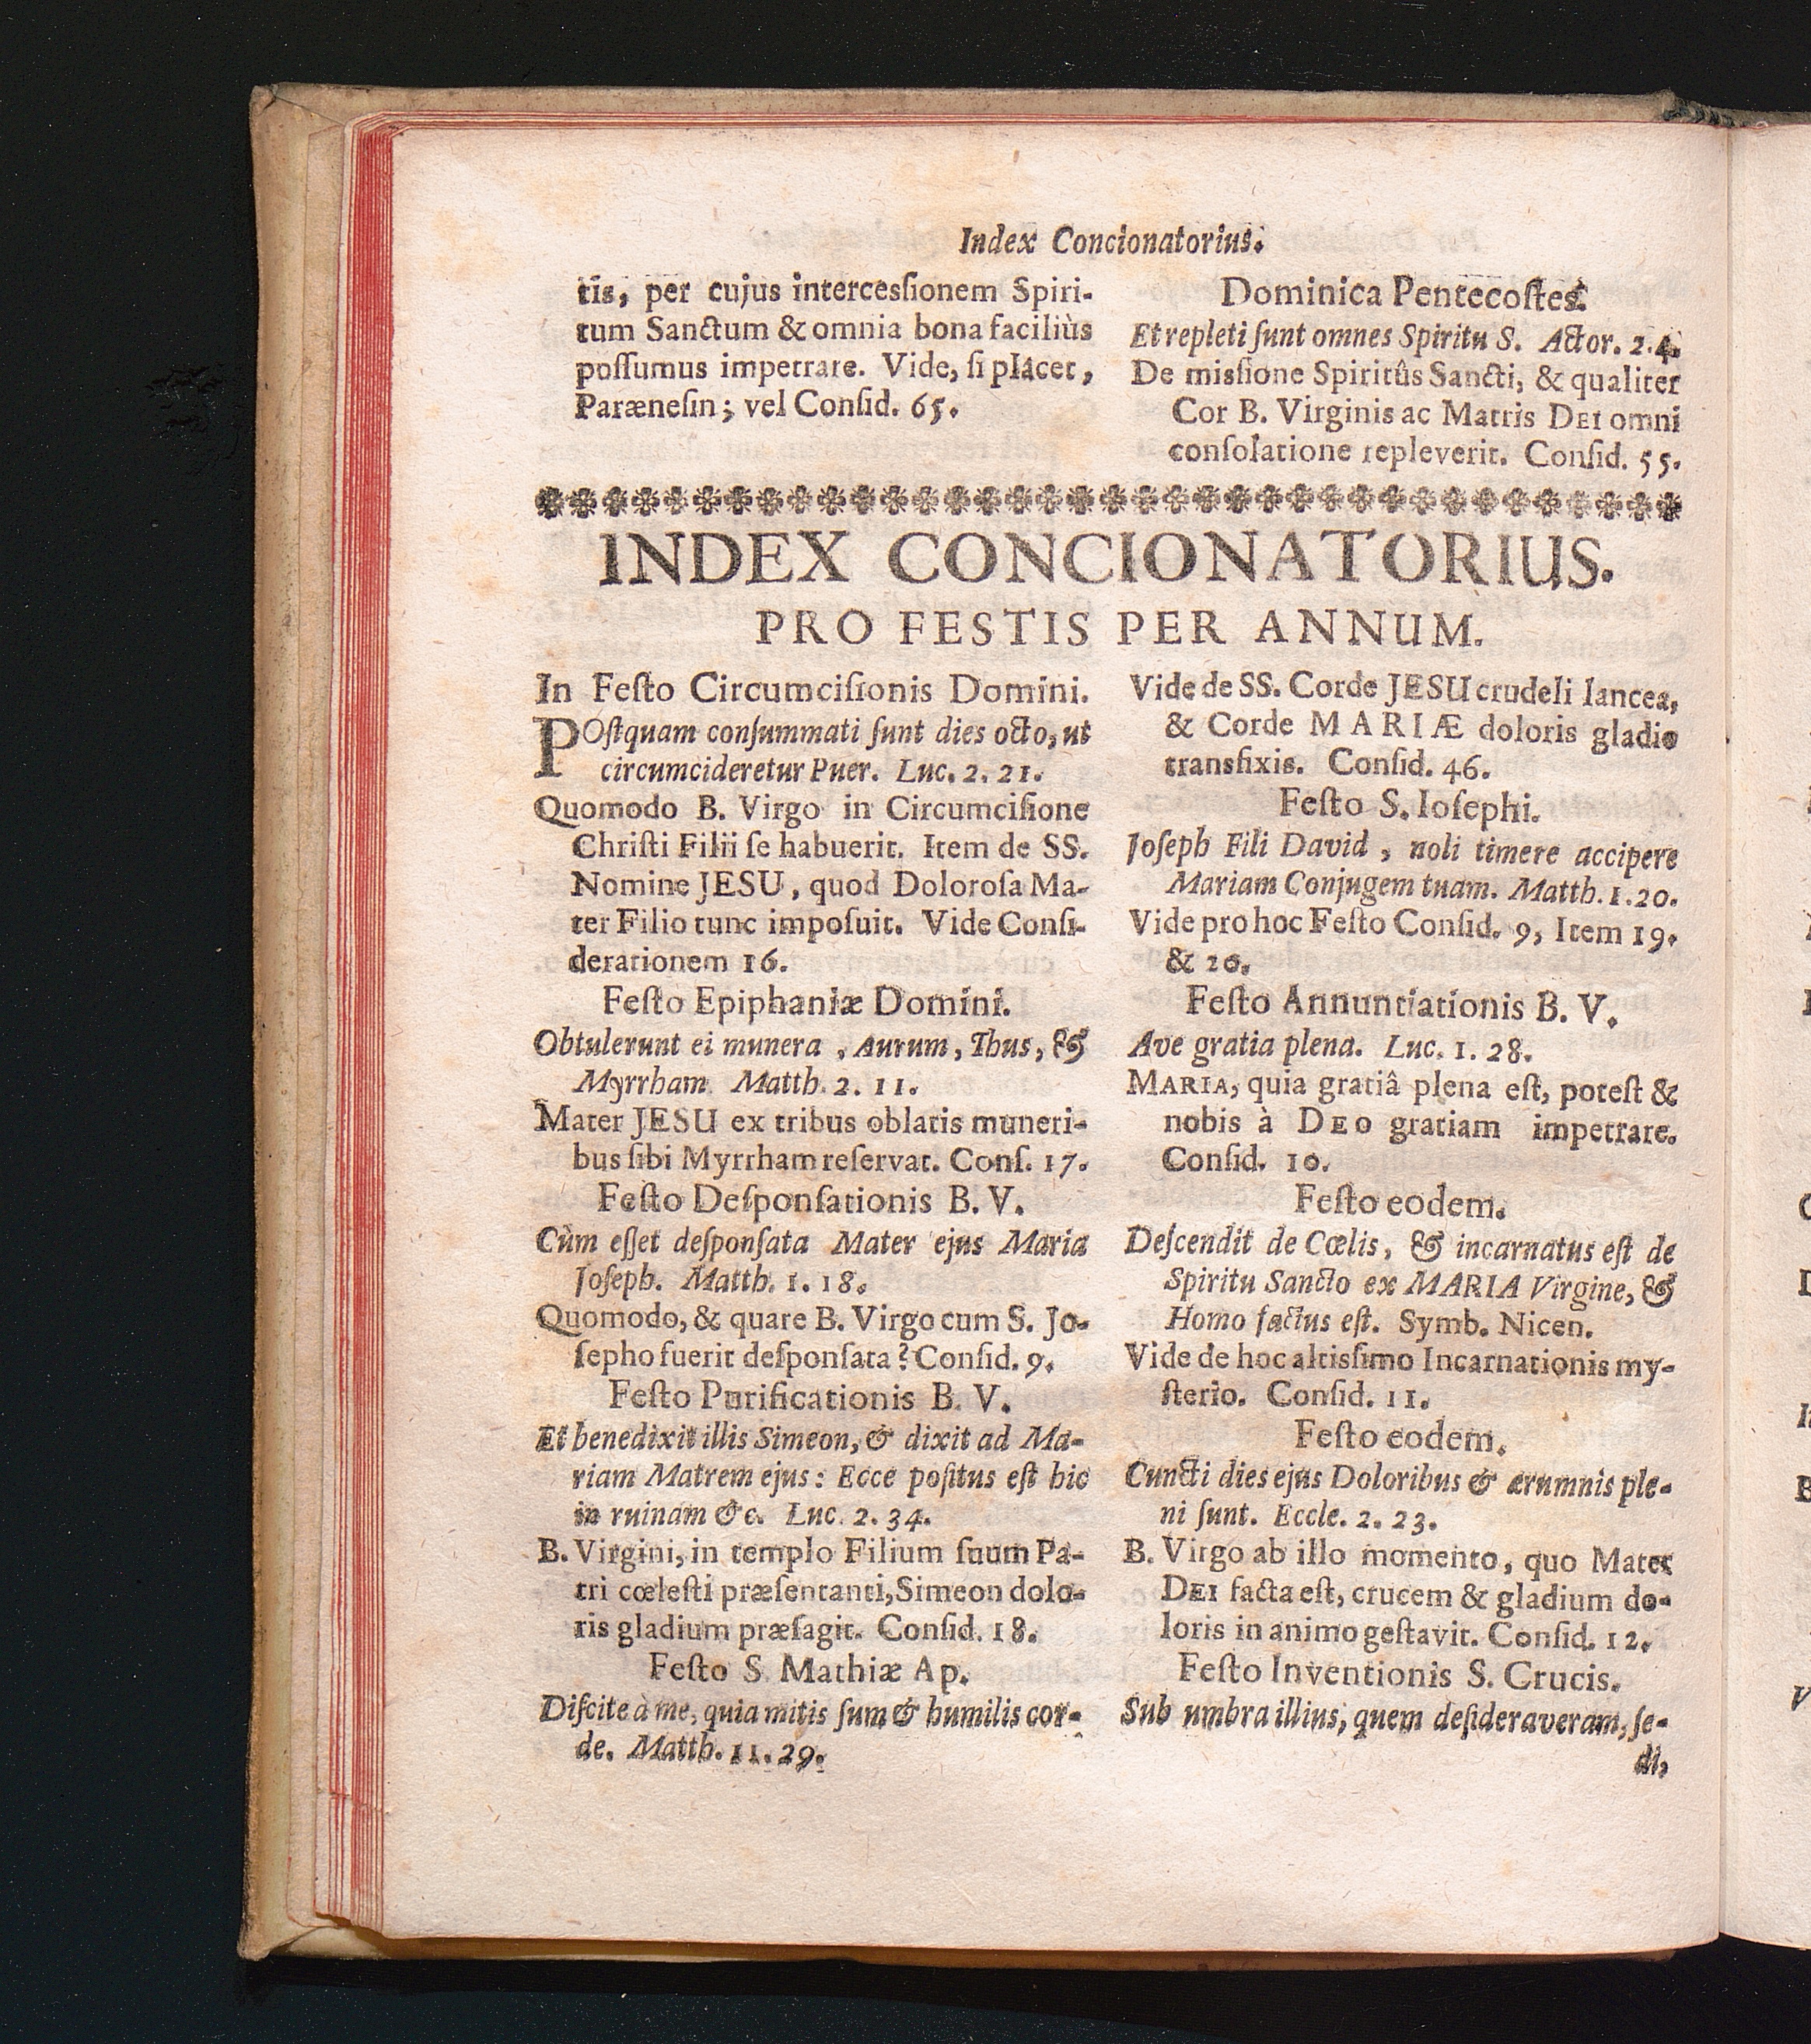 Index Concionatorius.
tis, per cujus intercesſionem Spiri-
tum Sanctum & omnia bona faciliùs
poſſumus impetrare. Vide, ſi placet,
Parænesin; vel Conſid. 65.
Dominica Pentecoſtes.
Et repleti ſunt omnes Spiritu S. Actor. 2.4.
De misſione Spiritûs Sancti, & qualiter
Cor B. Virginis ac Matris DEI omni
conſolatione repleverit. Conſid. 55.
INDEX CONCIONATORIUS.
PRO FESTIS PER ANNUM.
In Feſto Circumciſionis Domini.
POſtquam conſummati ſunt dies octo, ut
circumcideretur Puer. Luc. 2. 21.
Quomodo B. Virgo in Circumciſione
Chriſti Filii ſe habuerit. Item de SS.
Nomine JESU, quod Doloroſa Ma-
ter Filio tunc impoſuit. Vide Conſi-
derationem 16.
Feſto Epiphaniæ Domini.
Obtulerunt ei munera, Aurum, Thus, &
Myrrham. Matth. 2. 11.
Mater JESU ex tribus oblatis muneri-
bus ſibi Myrrham reſervat. Conſ. 17.
Feſto Deſponſationis B. V.
Cùm eſſet deſponſata Mater ejus Maria
Joſeph. Matth. 1. 18.
Quomodo, & quare B. Virgo cum S. Jo-
ſepho fuerit deſponſata? Conſid. 9.
Feſto Purificationis B. V.
Et benedixit illis Simeon, & dixit ad Ma-
riam Matrem ejus: Ecce poſitus eſt hic
in ruinam &c. Luc. 2. 34.
B. Virgini, in templo Filium ſuum Pa-
tri cœleſti præſentanti, Simeon dolo-
ris gladium præſagit. Conſid. 18.
Feſto S. Mathiæ Ap.
Diſcite à me, quia mitis ſum & humilis cor-
de. Matth. 11. 29.
Vide de SS. Corde JESU crudeli lancea,
& Corde MARIÆ doloris gladio
transfixis. Conſid. 46.
Feſto S. Ioſephi.
Joſeph Fili David, noli timere accipere
Mariam Conjugem tuam. Matth. 1. 20.
Vide pro hoc Feſto Conſid. 9, Item 19.
& 20.
Feſto Annuntiationis B. V.
Ave gratia plena. Luc. 1. 28.
MARIA, quia gratiâ plena eſt, poteſt &
nobis à DEO gratiam impetrare.
Conſid. 10.
Feſto eodem.
Deſcendit de Cœlis, & incarnatus eſt de
Spiritu Sancto ex MARIA Virgine, &
Homo factus eſt. Symb. Nicen.
Vide de hoc altisſimo Incarnationis my-
ſterio. Conſid. 11.
Feſto eodem.
Cuncti dies ejus Doloribus & ærumnis ple-
ni ſunt. Eccle. 2. 23.
B. Virgo ab illo momento, quo Mater
DEI facta eſt, crucem & gladium do-
loris in animo geſtavit. Conſid. 12.
Feſto Inventionis S. Crucis.
Sub umbra illius, quem deſideraveram, ſe-
di,